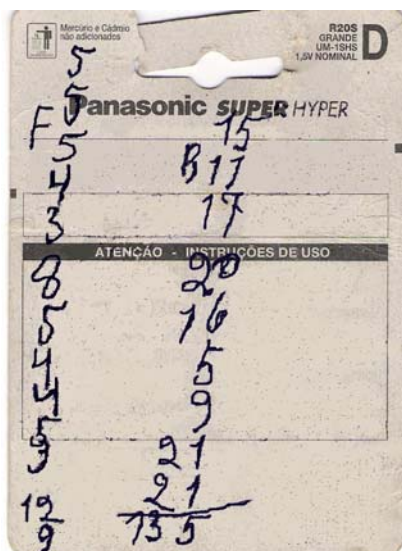 Mercúrio e Cádmio
não adicionados
R20S
GRANDE
UM-1SHS
1,5V NOMINAL
D
Panasonic SUPER HYPER
ATENÇÃO - INSTRUÇÕES DE USO
5
5
F 5
4
3
8
5
4
4
5
12
9
15
B 11
17
20
16
5
9
21
21
135